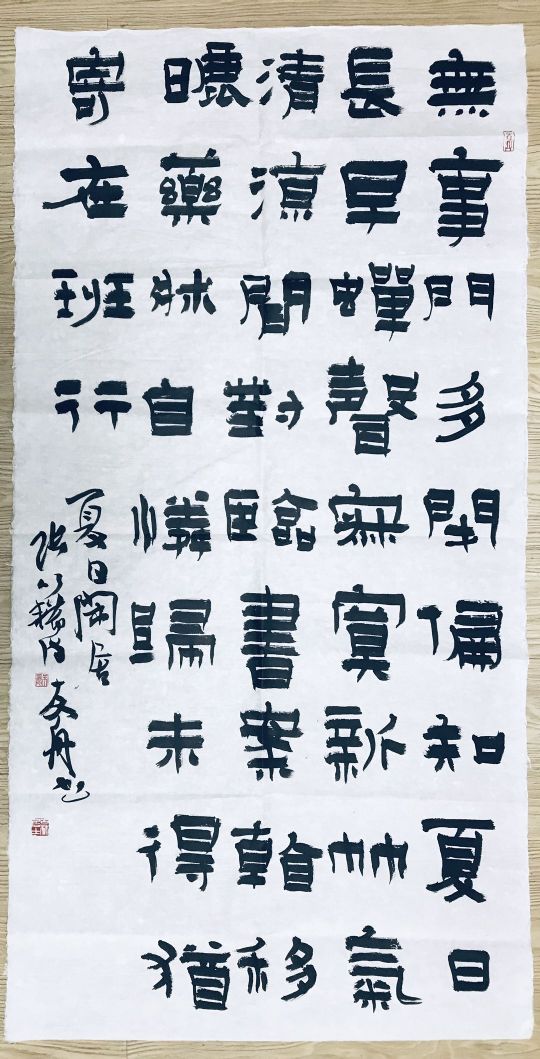 無事門多閉偏知夏日
長早蟬聲寂寞新竹氣
清涼閒對臨書案看移
曬藥牀自憐歸未得猶
寄在班行
夏日閒居
張籍詩 友丹书